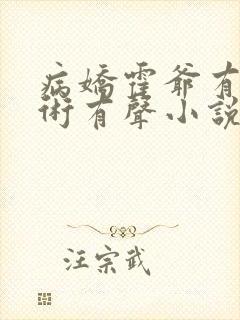 病嬌霍爺有
術有聲小說
汪宗武